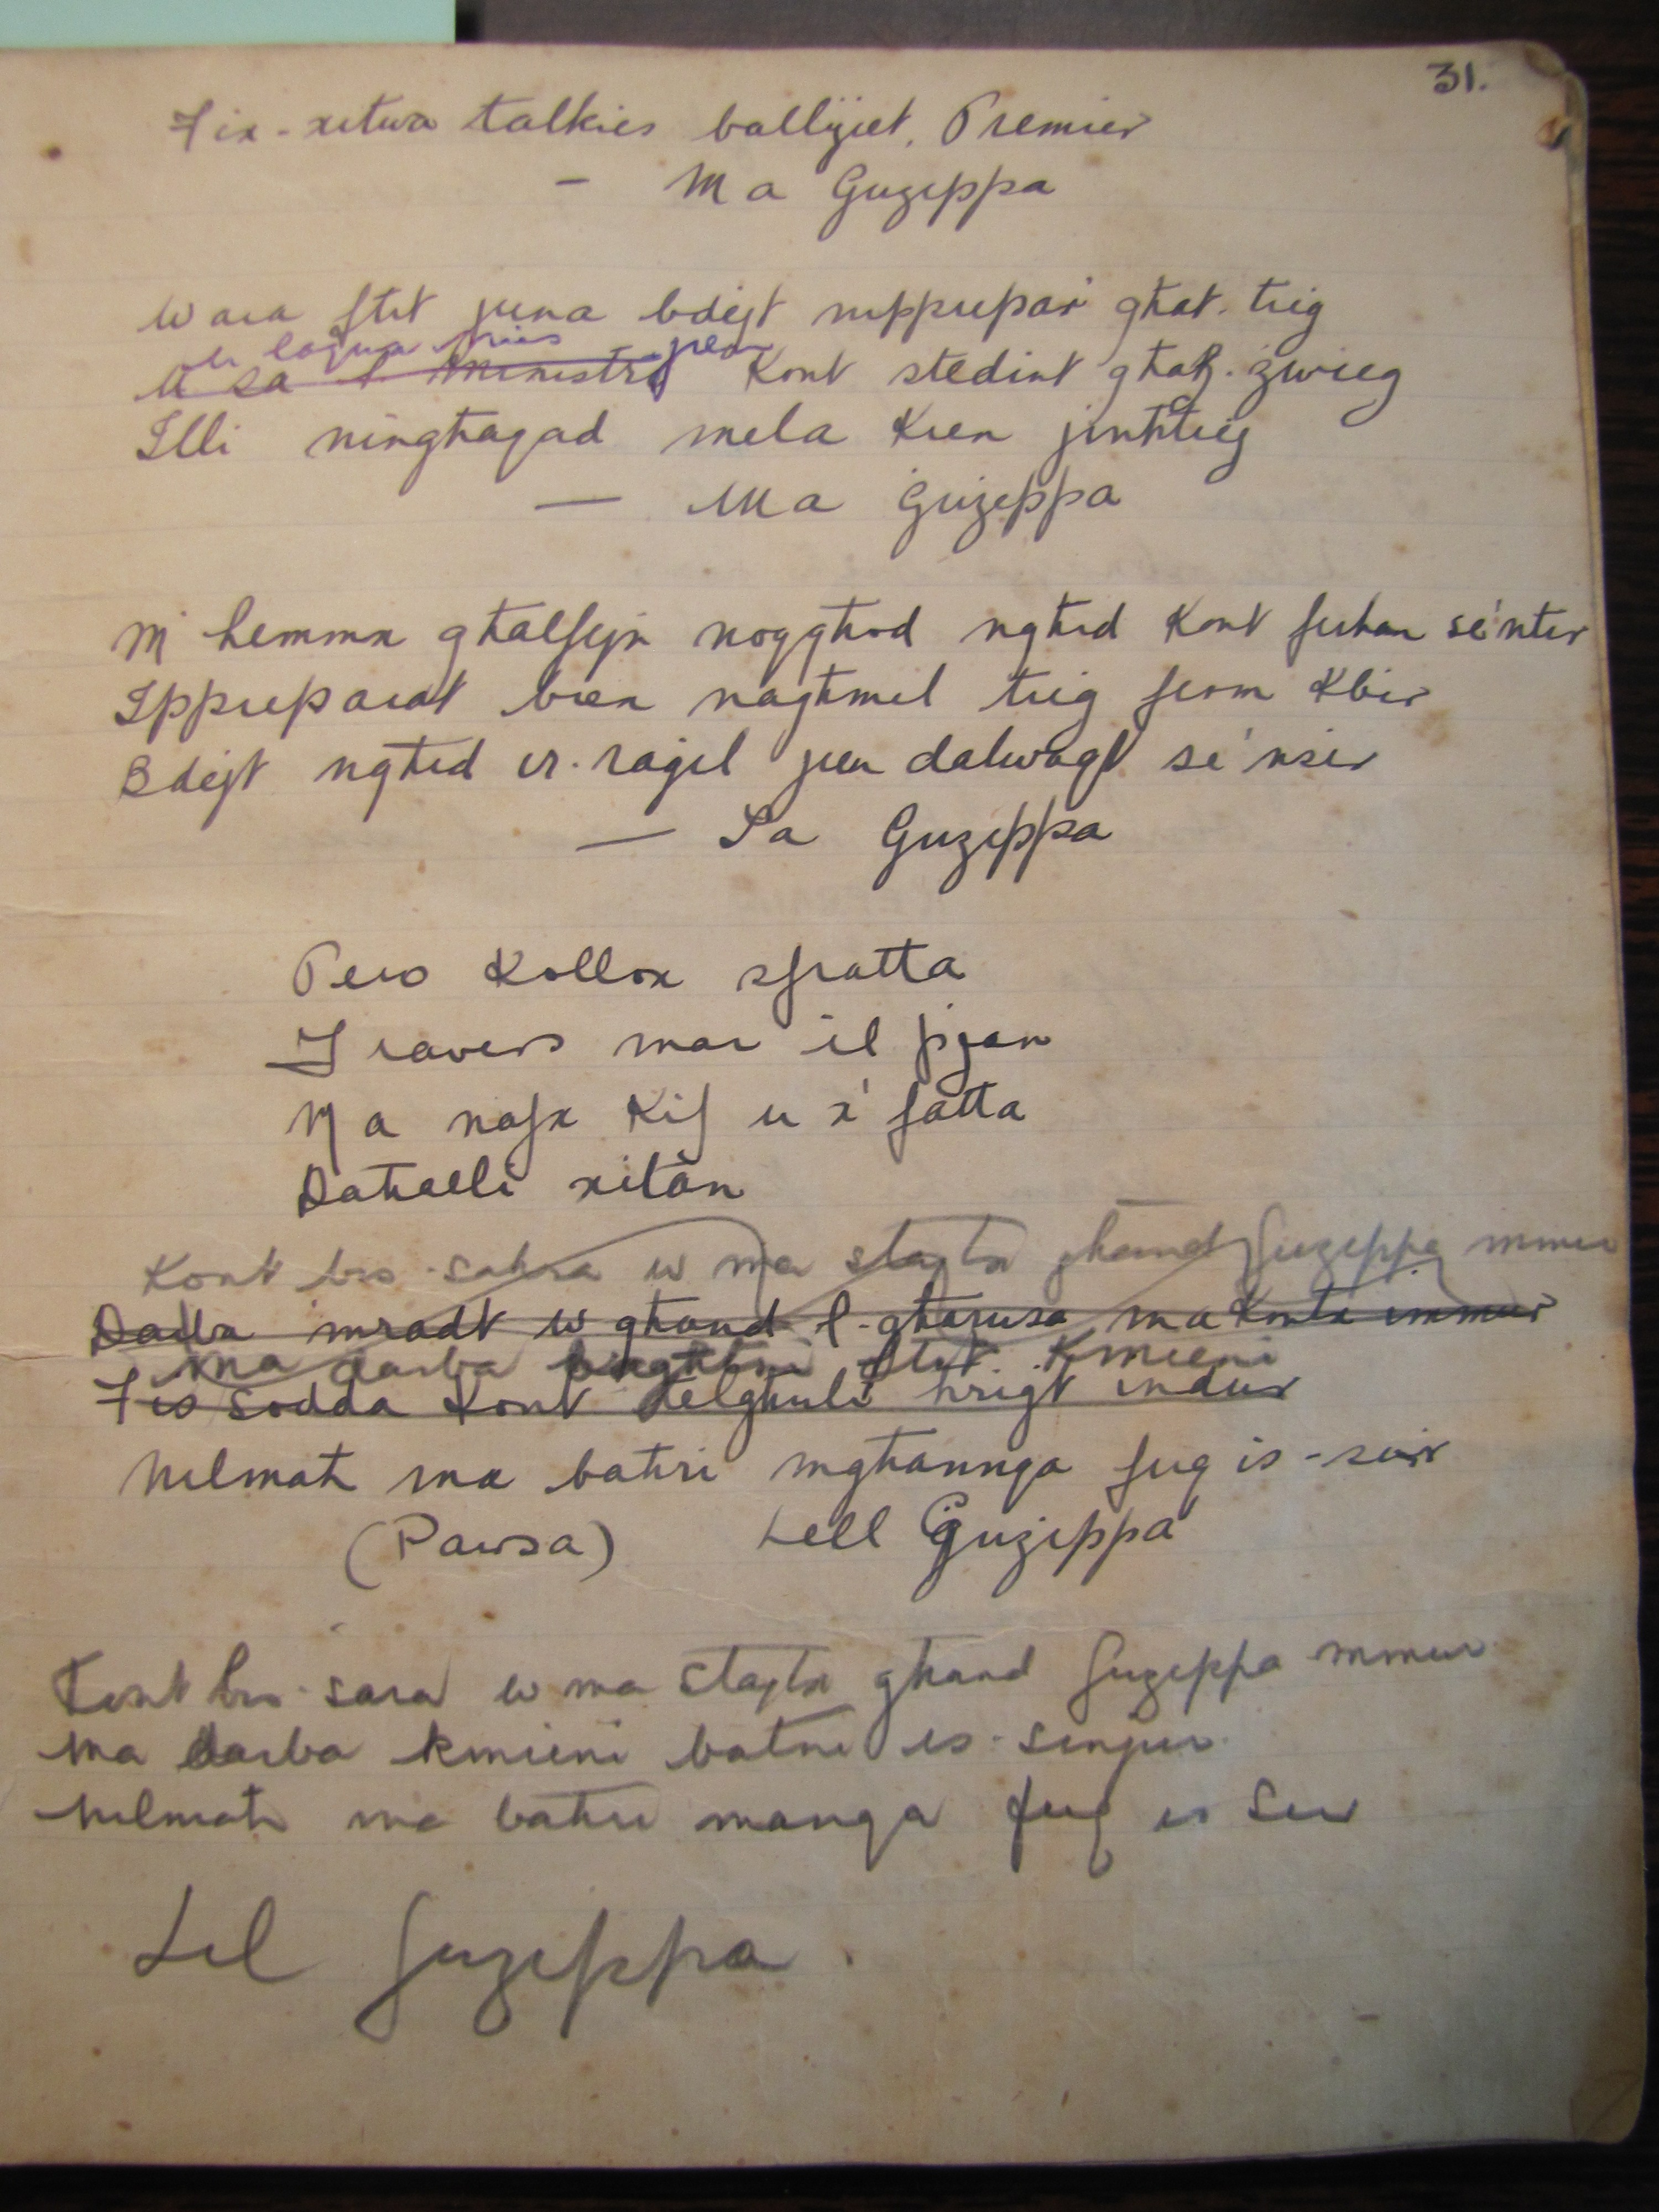 31.
Fix-xitwa talkies ballijiet, Premier
— Ma Guzeppa
Wara ftit jiena bdejt nipprepar ghat-tieg
Kont stedint ghaz-zwieg
Illi ninghaqad mela kien jintteig
— Ma Giuzeppa
M'hemmx ghalfejn noqghod nghid kont ferhan sé ntir
Ippreparat biex naghmel tieg ferm kbir
Bdejt nghid ir-ragel jien dalwaqt sé nsir
— Sa Guzeppa
Pero Kollox sfratta
Travers mar il pjan
Ma nafx Kif u x' fatta
Dahalli xitàn
Kont bis-sahra w ma stajtx ghand Guzeppa mmur
Darba mradt w ghand l-gharusa ma kontx immur
ma darba ftit Kmieni
Fis sodda kont telghuli hriqt indur
Nilmah ma bahri mghannqa fuq is-sur
(Pawsa) Lell Guzeppa
Kont bis-sara w ma stajtx ghand Guzeppa mmur
ma darba kmieni batni is-sinjur
Nilmah ma bahri manqa fuq is Sur
Lel Guzeppa